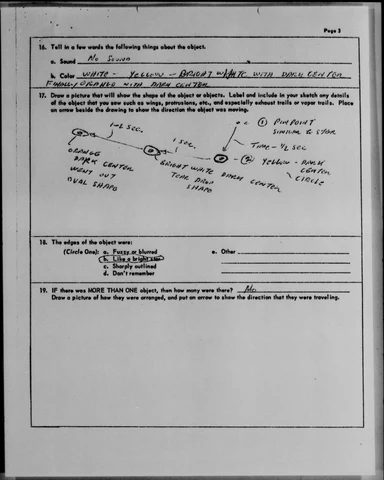 Page 3
16. Tell in a few words the following things about the object.
a. Sound No Sound
b. Color WHITE - YELLOW - BRIGHT WHITE WITH DARK CENTER
FINALLY ORANGE WITH DARK CENTER
17. Draw a picture that will show the shape of the object or objects. Label and include in your sketch any details
of the object that you saw such as wings, protrusions, etc., and especially exhaust trails or vapor trails. Place
an arrow beside the drawing to show the direction the object was moving.
1-2 SEC.
1 SEC.
① PINPOINT
SIMILAR TO STAR
TIME - 1/2 SEC
② YELLOW - DARK
CENTER
CIRCLE
ORANGE
DARK CENTER
WENT OUT
OVAL SHAPE
BRIGHT WHITE DARK CENTER
TEAR DROP
SHAPE
18. The edges of the object were:
(Circle One): a. Fuzzy or blurred
b. Like a bright star
c. Sharply outlined
d. Don't remember
e. Other
19. IF there was MORE THAN ONE object, then how many were there? No
Draw a picture of how they were arranged, and put an arrow to show the direction that they were traveling.